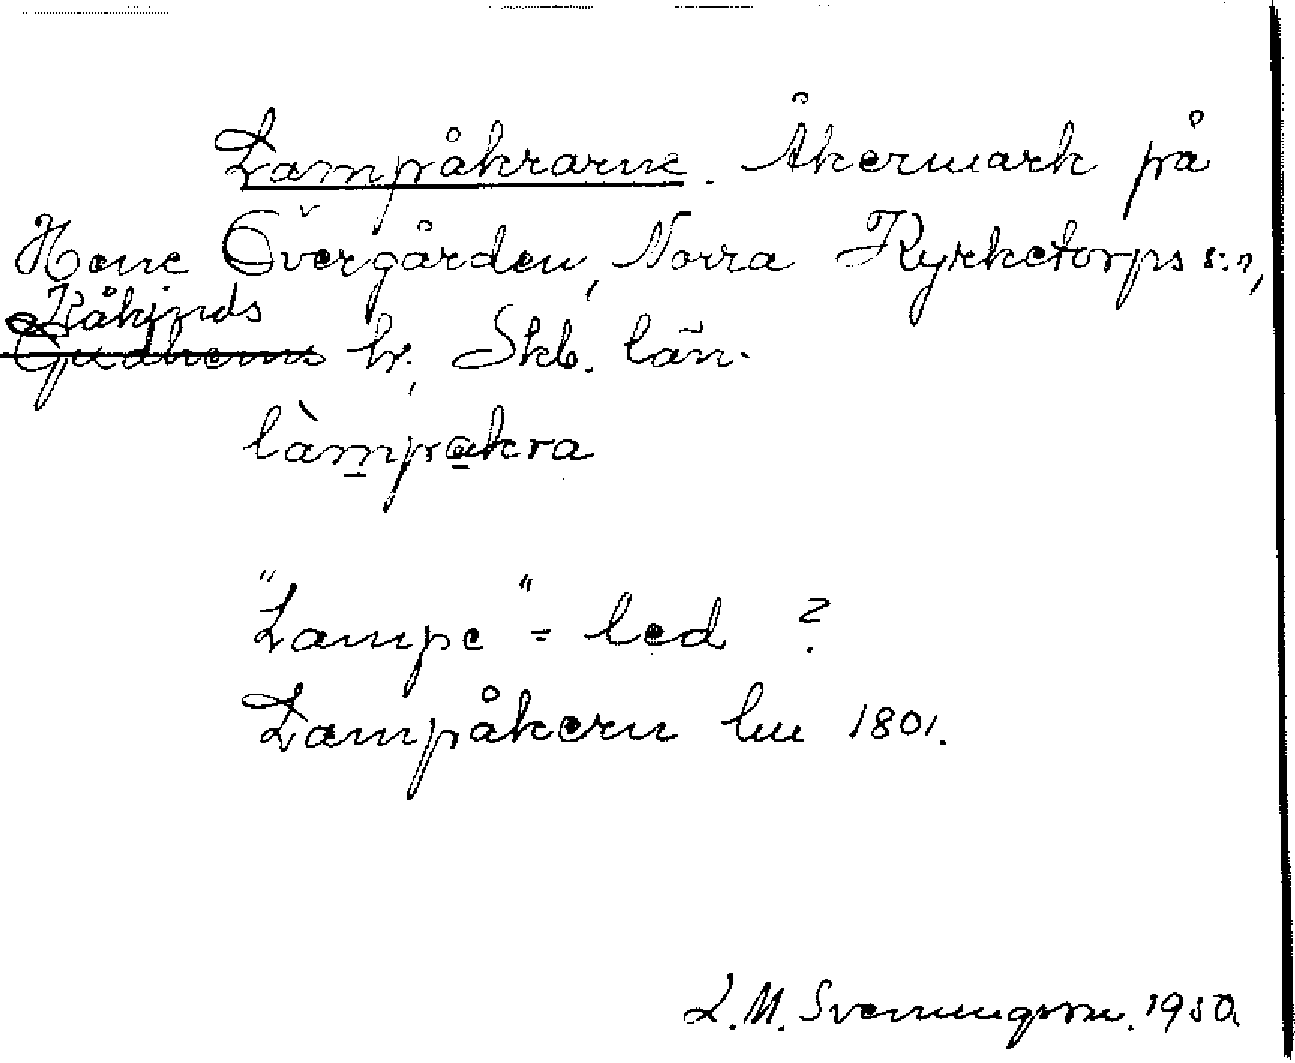 Lampåkrarne. Åkermark på
Hene Övergården, Norra Kyrketorps sn,
Kåkinds
Gudhems hr, Skb. län.
làmpakra
"Lampe" = led ?
Lampåkern lm 1801.
L.M. Svenungsson. 1950